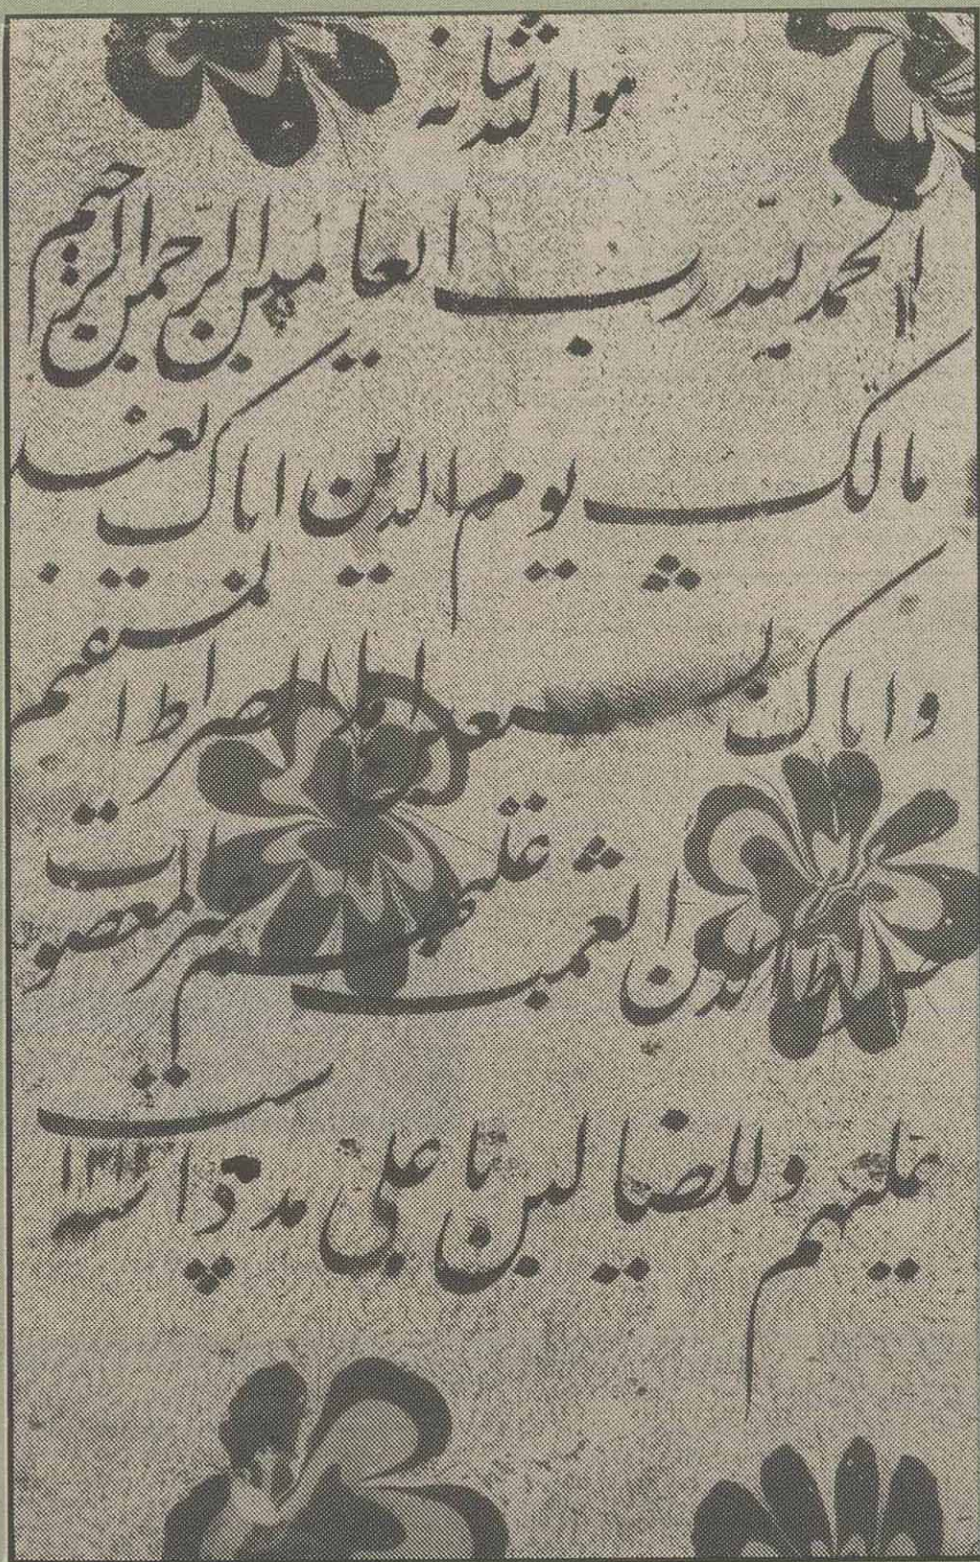 هوالله شانه
الحمد لله رب العالمین الرحمن الرحیم
مالک یوم الدین ایاک نعبد
وایاک نستعین اهدنا الصراط المستقیم صراط ا
لذین انعمت علیهم غیر المغضوب
علیهم وللضالین یا علی مدد